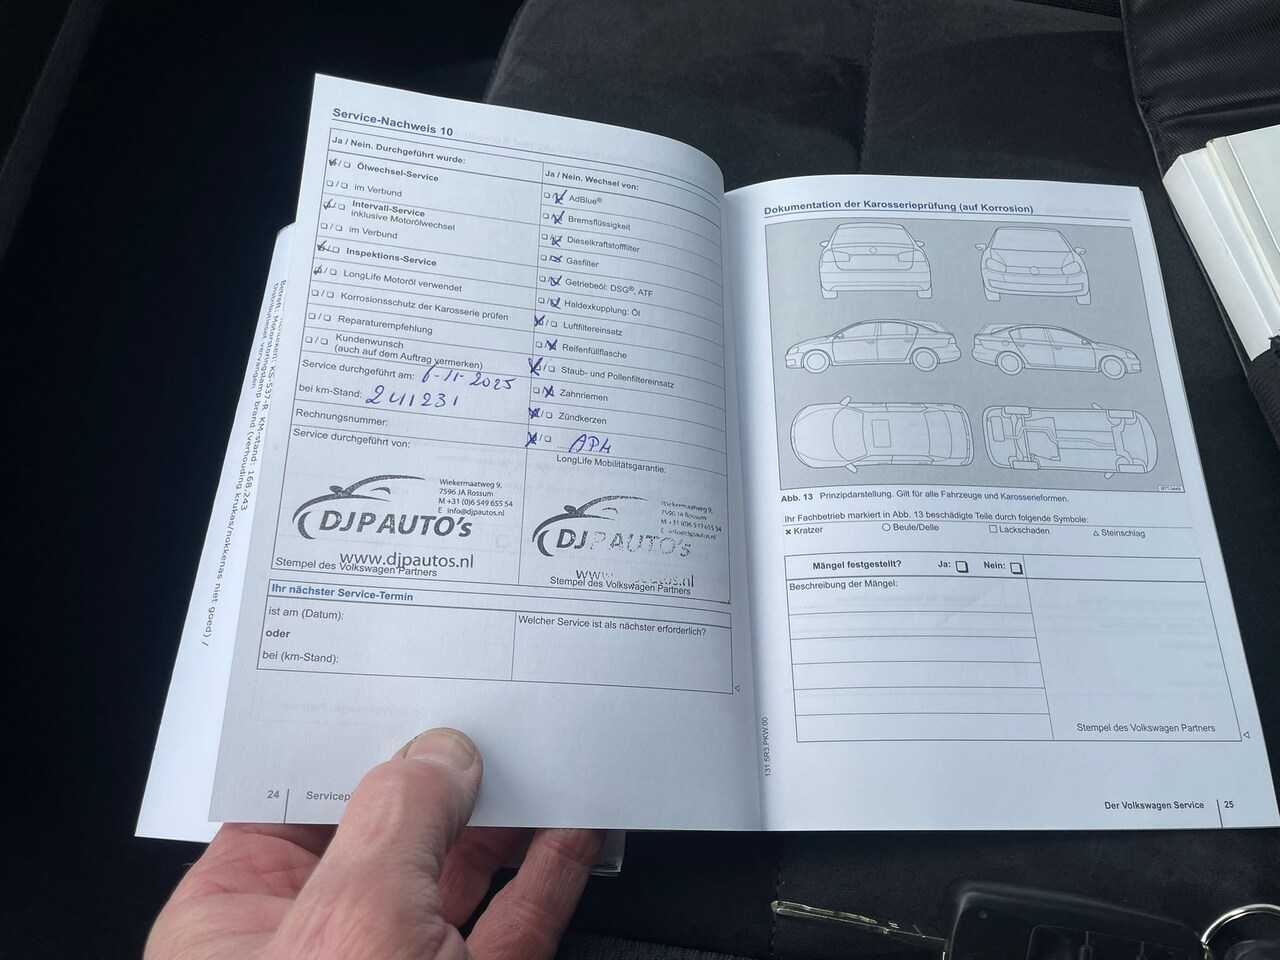 Service-Nachweis 10
Ja / Nein. Durchgeführt wurde:
Ölwechsel-Service
im Verbund
Intervall-Service
inklusive Motorölwechsel
im Verbund
Inspektions-Service
LongLife Motoröl verwendet
Korrosionsschutz der Karosserie prüfen
Reparaturempfehlung
Kundenwunsch
(auch auf dem Auftrag vermerken)
Service durchgeführt am: 6-11-2025
bei km-Stand: 241231
Rechnungsnummer:
Service durchgeführt von:
Ja / Nein. Wechsel von:
AdBlue®
Bremsflüssigkeit
Dieselkraftstofffilter
Gasfilter
Getriebeöl: DSG®, ATF
Haldexkupplung: Öl
Luftfiltereinsatz
Reifenfüllflasche
Staub- und Pollenfiltereinsatz
Zahnriemen
Zündkerzen
APK
LongLife Mobilitätsgarantie:
Wiekermaatweg 9,
7596 JA Rossum
M +31 (0)6 549 655 54
E info@djpautos.nl
DJPAUTO's
www.djpautos.nl
Stempel des Volkswagen Partners
Wiekermaatweg 9,
7596 JA Rossum
M +31 (0)6 549 655 54
E info@djpautos.nl
DJPAUTO's
Stempel des Volkswagen Partners
Ihr nächster Service-Termin
ist am (Datum):
oder
bei (km-Stand):
Welcher Service ist als nächster erforderlich?
24
Dokumentation der Karosserieprüfung (auf Korrosion)
B7T-0449
Abb. 13 Prinzipdarstellung. Gilt für alle Fahrzeuge und Karosserieformen.
Ihr Fachbetrieb markiert in Abb. 13 beschädigte Teile durch folgende Symbole:
Kratzer
Beule/Delle
Lackschaden
Steinschlag
Mängel festgestellt? Ja: Nein:
Beschreibung der Mängel:
Stempel des Volkswagen Partners
131.5R3.PKW.00
Der Volkswagen Service 25
KS-537-R, KM-stand: 168.243
Distributieser vervangen brand (verhouding krukas/nokkenas niet goed) /